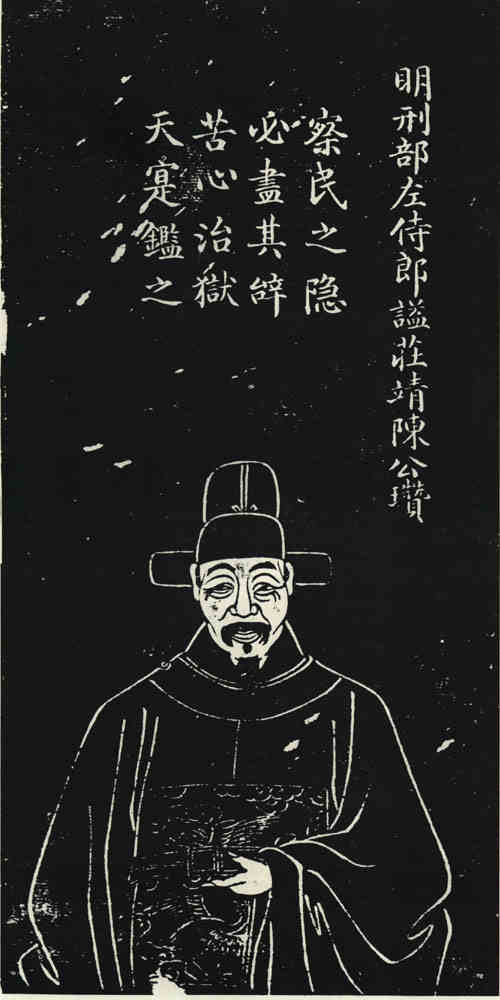 明刑部左侍郎謚莊靖陳公瓚
察民之隐
必盡其辝
苦心治獄
天寔鑑之